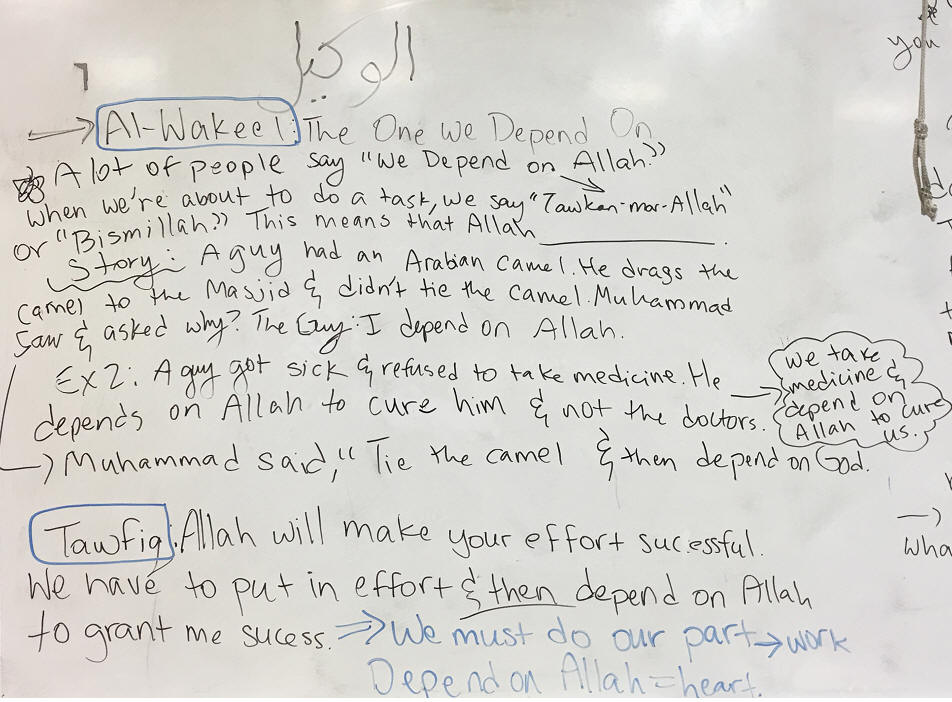 الوكيل
you
→ Al-Wakeel: The One we Depend On
A lot of people say "We Depend on Allah"
when we're about to do a task, we say "Tawkan-mor-Allah"
or "Bismillah." This means that Allah ________.
Story: A guy had an Arabian camel. He drags the
camel to the Masjid & didn't tie the camel. Muhammad
saw & asked why? The Guy: I depend on Allah.
Ex2: A guy got sick & refused to take medicine. He
depends on Allah to cure him & not the doctors.
we take
medicine &
depend on
Allah to cure
us.
→ Muhammad said, "Tie the camel & then depend on God.
Tawfiq: Allah will make your effort sucessful.
We have to put in effort & then depend on Allah
to grant me sucess. ⇒ We must do our part → work
Depend on Allah = heart.
→
wha